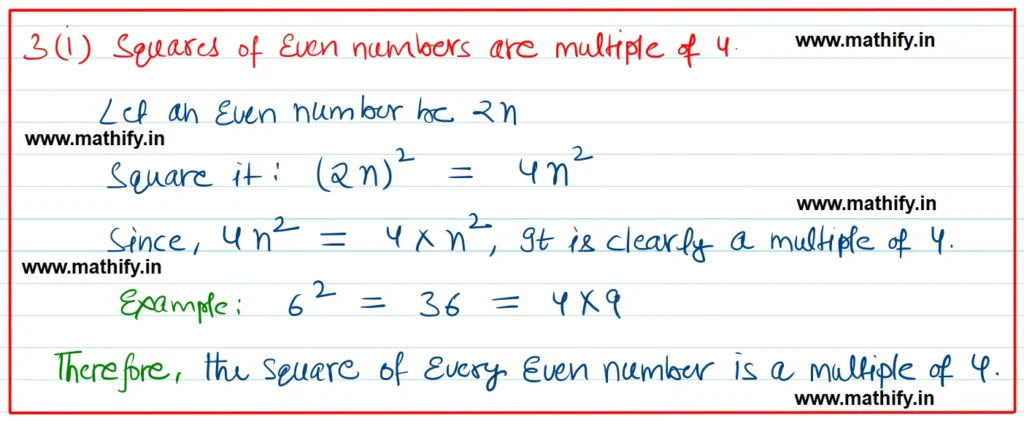 3(i) Squares of Even numbers are multiple of 4. www.mathify.in
Let an Even number be 2n
www.mathify.in
Square it: (2n)² = 4n²
www.mathify.in
Since, 4n² = 4×n², It is clearly a multiple of 4.
www.mathify.in
Example: 6² = 36 = 4×9
Therefore, the square of Every Even number is a multiple of 4.
www.mathify.in